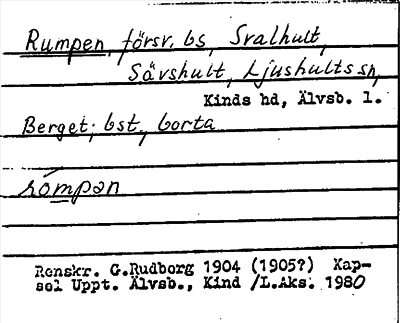 Rumpen, försv. bs, Svalhult,
Sävshult, Ljushults sn,
Kinds hd, Älvsb. l.
Berget; bst., borta
rómpan
Renskr. G.Rudborg 1904 (1905?) Kap-
sel Uppt. Älvsb., Kind /L.Aks. 1980